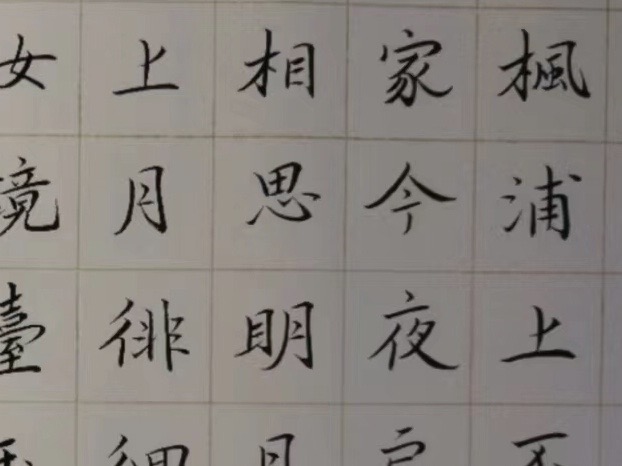 楓浦上
家今夜
相思眀月
上月徘徊
臺